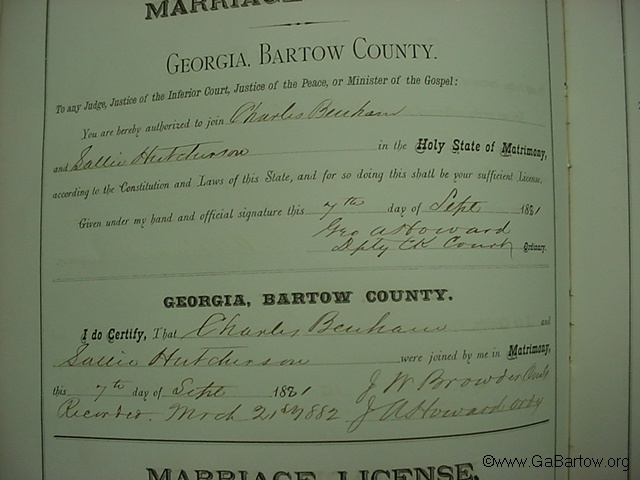 MARRIAGE
GEORGIA, BARTOW COUNTY.
To any Judge, Justice of the Inferior Court, Justice of the Peace, or Minister of the Gospel:
You are hereby authorized to join Charles Benham
and Sallie Hutcherson in the Holy State of Matrimony,
according to the Constitution and Laws of this State, and for so doing this shall be your sufficient License.
Given under my hand and official signature this 7th day of Sept 1881
Geo A Howard
Dpty Clk Court Ordinary.
GEORGIA, BARTOW COUNTY.
I do Certify, That Charles Benham and
Sallie Hutcherson were joined by me in Matrimony,
this 7th day of Sept 1881 J W Browder
Recorded. Mrch 21st 1882 J A Howard Ordy
MARRIAGE LICENSE.
©www.GaBartow.org